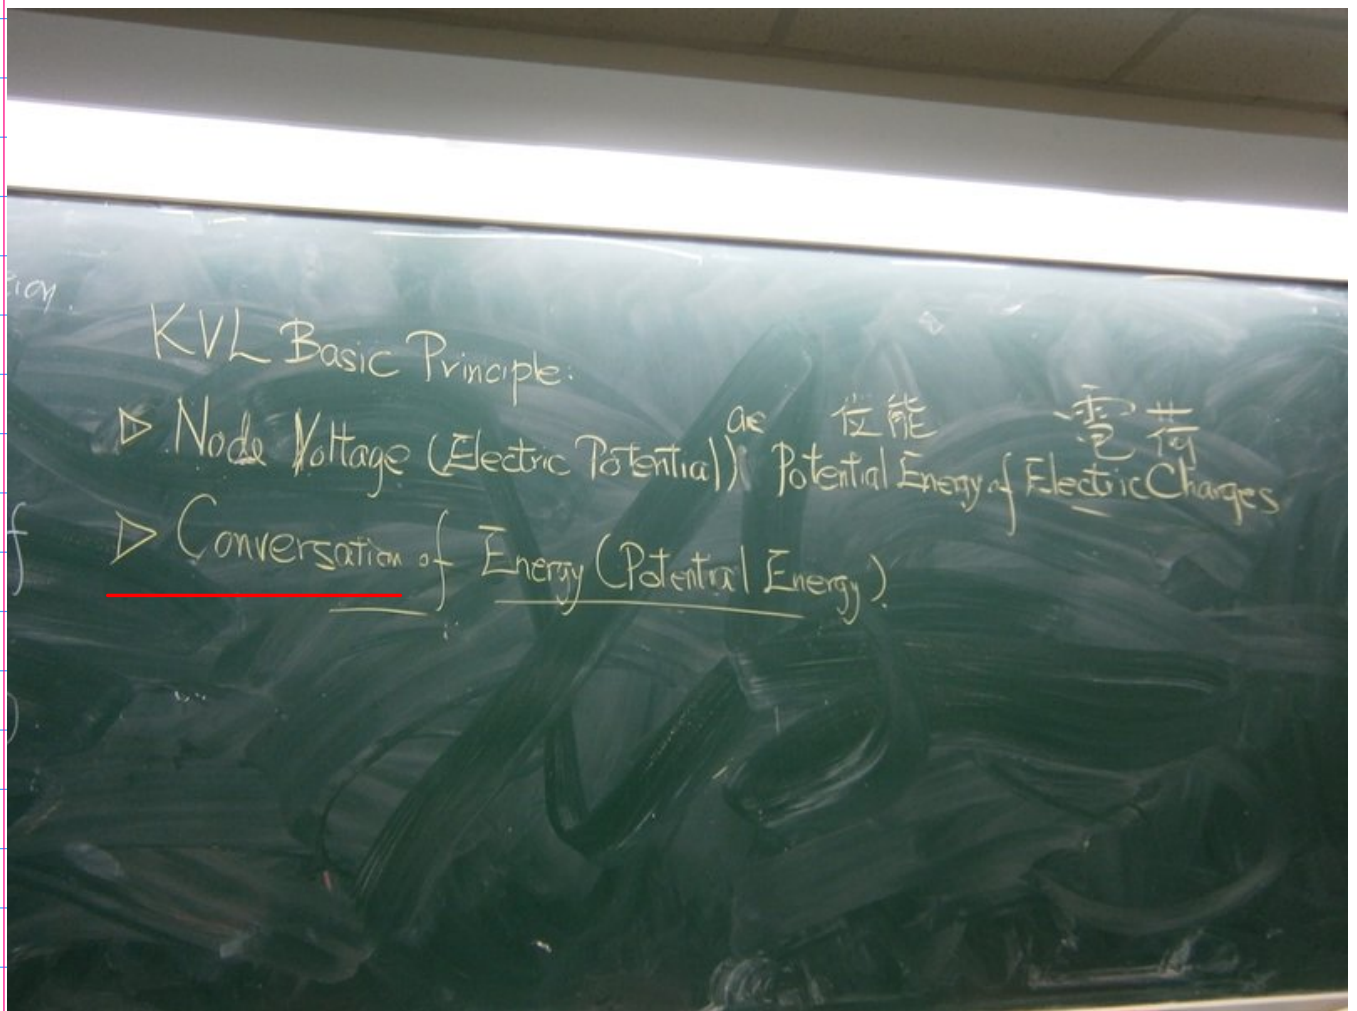 KVL Basic Principle:
are 位能 電荷
▷ Node Voltage (Electric Potential) Potential Energy of Electric Charges
▷ Conversation of Energy (Potential Energy)